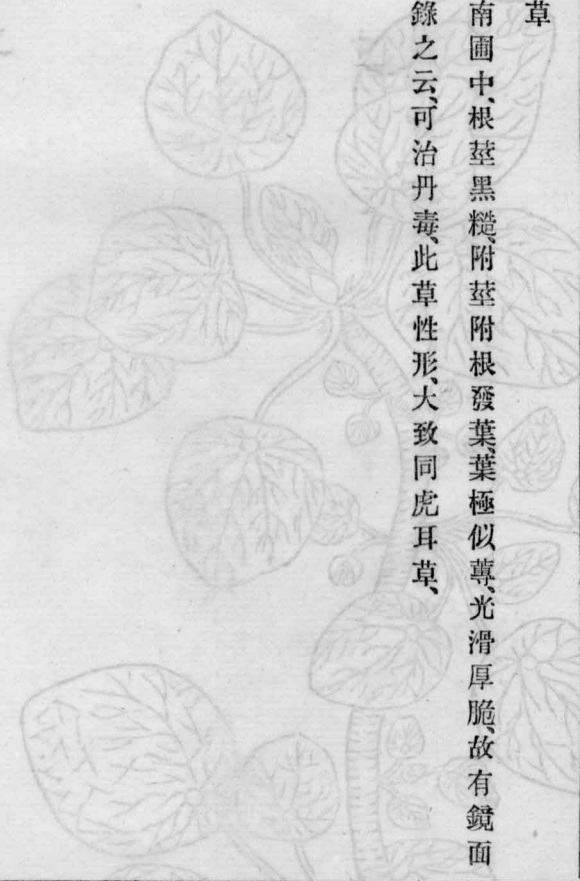 草
南圃中、根莖黑糙、附莖附根發葉、葉極似蓴、光滑厚脆、故有鏡面
錄之云、可治丹毒、此草性形、大致同虎耳草、